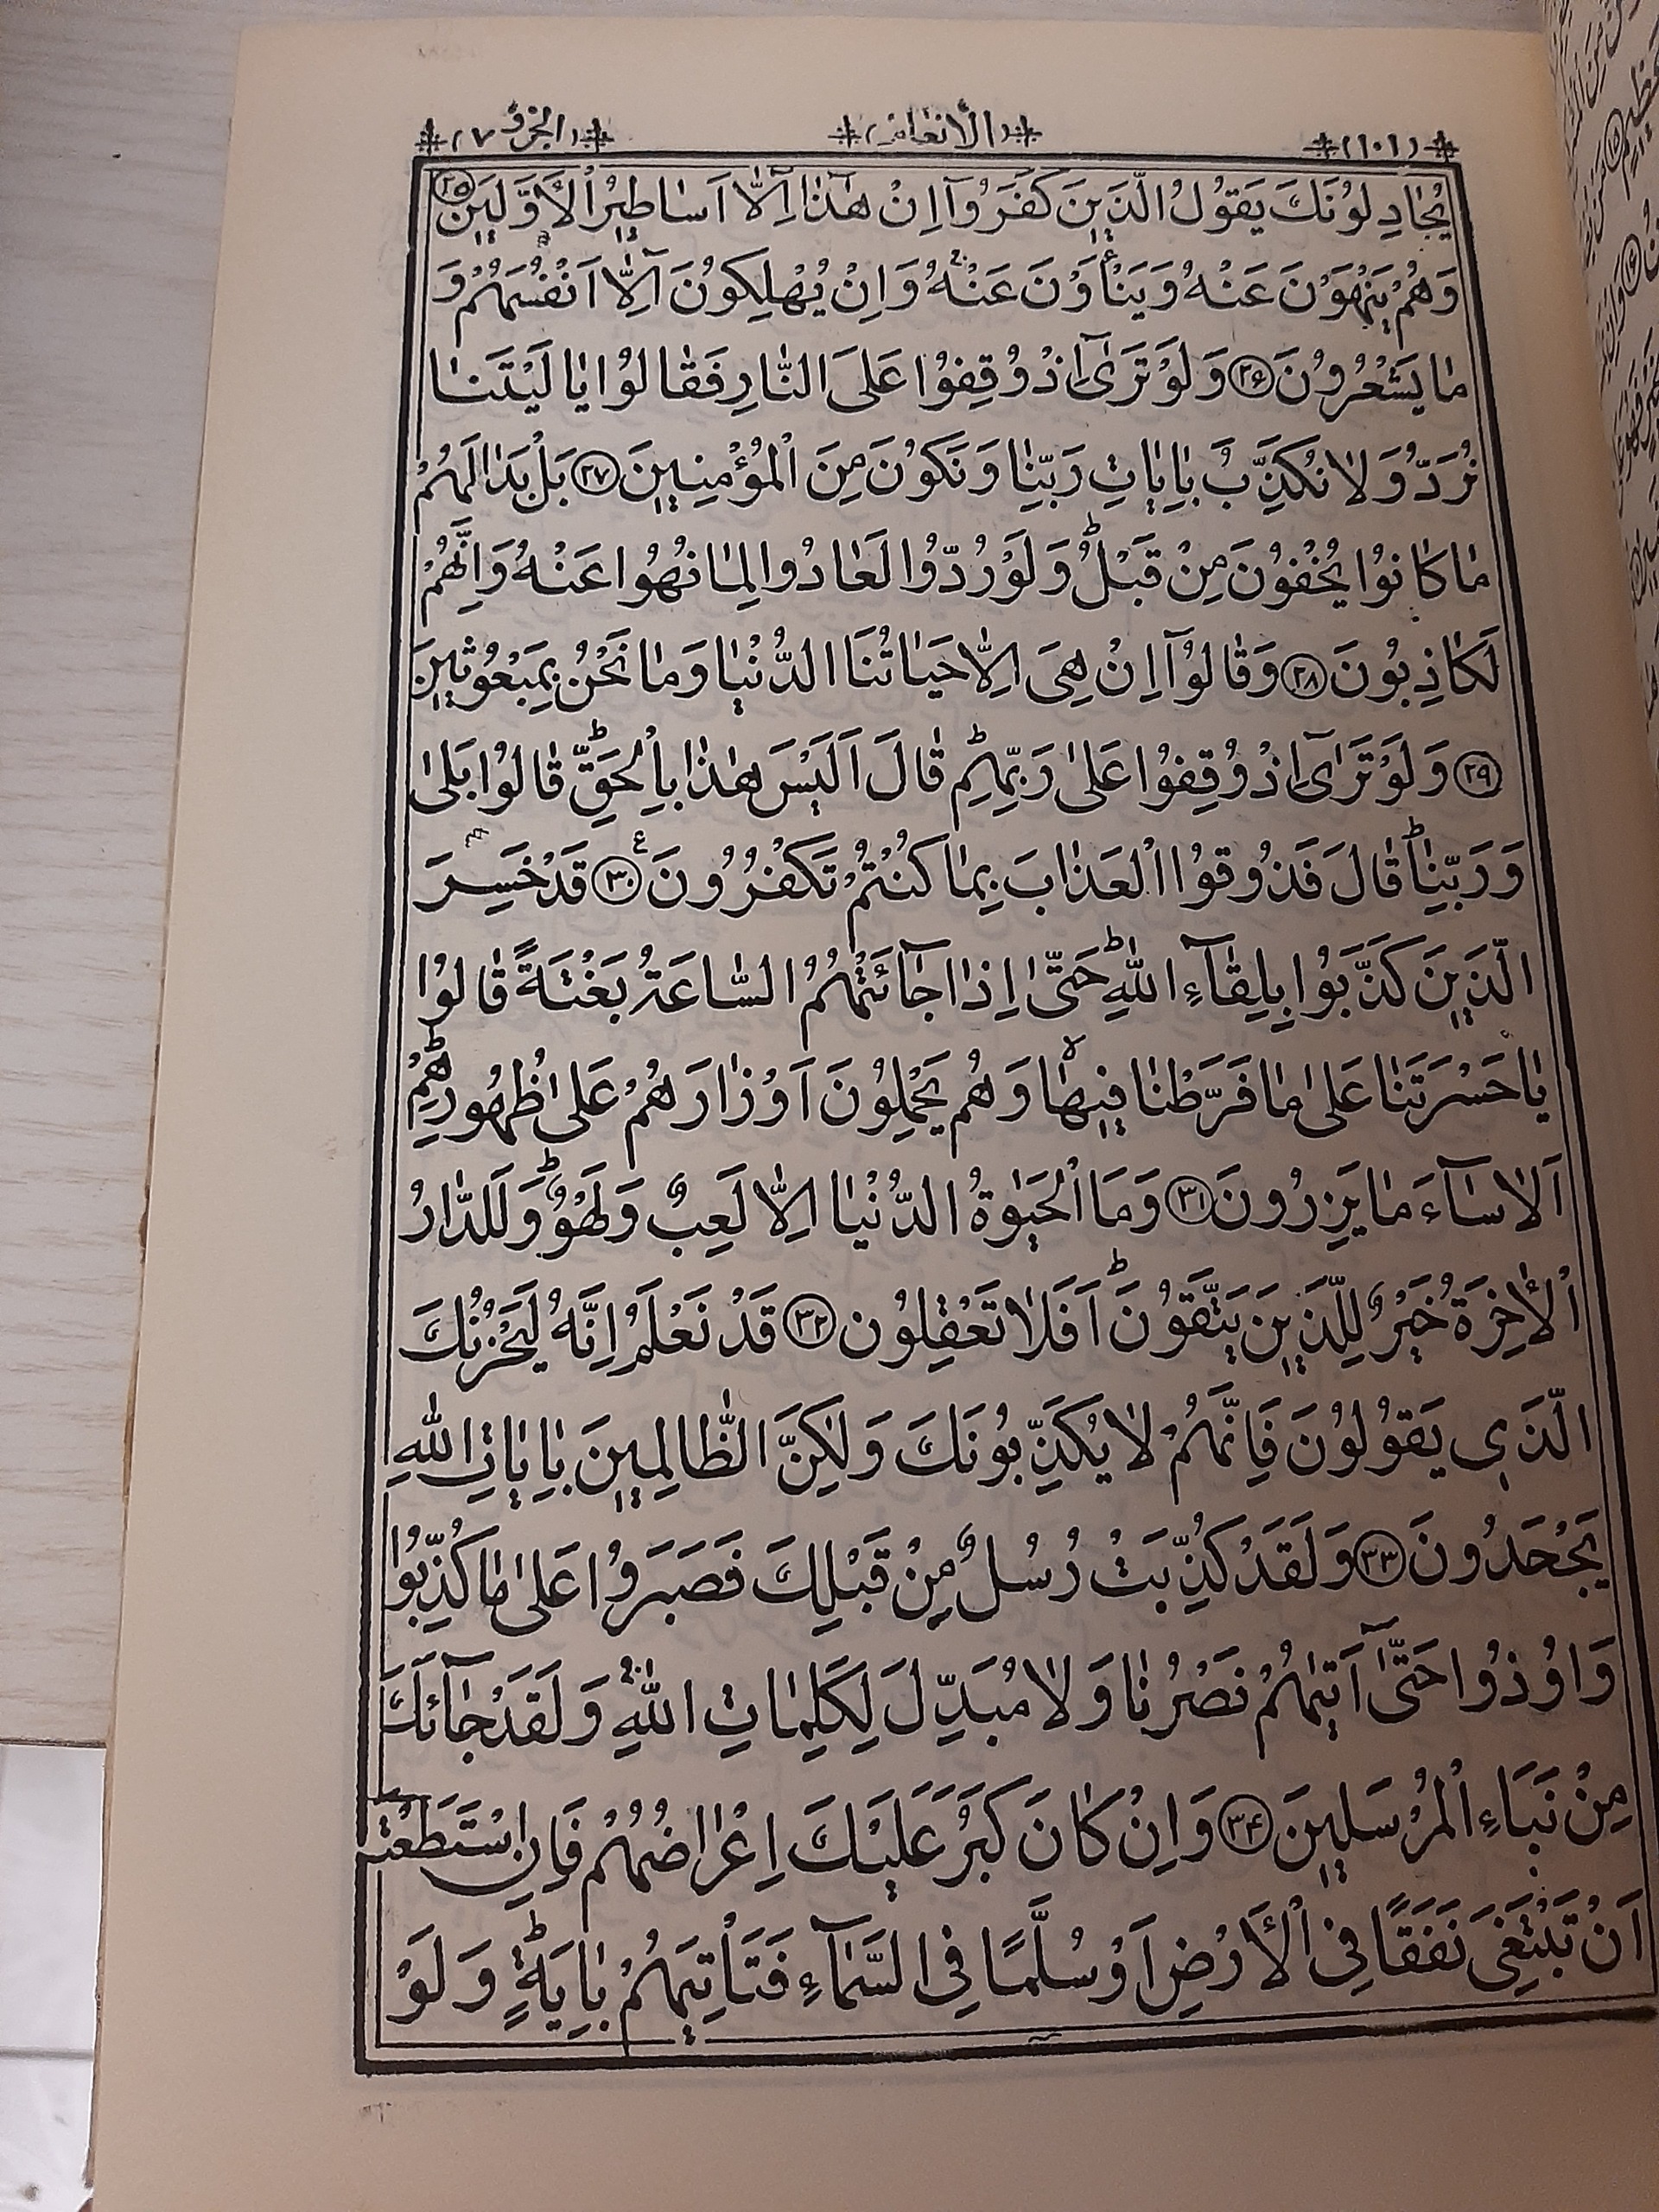 (١٠١) (الأنعام) (الجزؤ ٧)
يُجَادِلُونَكَ يَقُولُ الَّذِينَ كَفَرُوآ اِنْ هٰذَا اِلَّآ اَسَاطِيرُ الْاَوَّلِينَ ﴿٢٥﴾
وَهُمْ يَنْهَوْنَ عَنْهُ وَيَنْأَوْنَ عَنْهُ وَاِنْ يُهْلِكُونَ اِلَّآ اَنْفُسَهُمْ وَ
مَا يَشْعُرُونَ ﴿٢۶﴾ وَلَوْ تَرَىٓ اِذْ وُقِفُوا عَلَى النَّارِ فَقَالُوا يَا لَيْتَنَا
نُرَدُّ وَلَا نُكَذِّبَ بِاٰيَاتِ رَبِّنَا وَنَكُونَ مِنَ الْمُؤْمِنِينَ ﴿٢٧﴾ بَلْ بَدَا لَهُمْ
مَا كَانُوا يُخْفُونَ مِنْ قَبْلُ ط وَلَوْ رُدُّوا لَعَادُوا لِمَا نُهُوا عَنْهُ وَاِنَّهُمْ
لَكَاذِبُونَ ﴿٢٨﴾ وَقَالُوآ اِنْ هِيَ اِلَّا حَيَاتُنَا الدُّنْيَا وَمَا نَحْنُ بِمَبْعُوثِينَ
﴿٢٩﴾ وَلَوْ تَرَىٓ اِذْ وُقِفُوا عَلٰى رَبِّهِمْ ط قَالَ اَلَيْسَ هٰذَا بِالْحَقِّ ط قَالُوا بَلٰى
وَرَبِّنَا ط قَالَ فَذُوقُوا الْعَذَابَ بِمَا كُنْتُمْ تَكْفُرُونَ ﴿٣٠﴾ ع قَدْ خَسِرَ
الَّذِينَ كَذَّبُوا بِلِقَآءِ اللّٰهِ ط حَتّٰى اِذَا جَآئَتْهُمُ السَّاعَةُ بَغْتَةً قَالُوا
يَا حَسْرَتَنَا عَلٰى مَا فَرَّطْنَا فِيهَا لا وَهُمْ يَحْمِلُونَ اَوْزَارَهُمْ عَلٰى ظُهُورِهِمْ ط
اَلَا سَآءَ مَا يَزِرُونَ ﴿٣١﴾ وَمَا الْحَيٰوةُ الدُّنْيَا اِلَّا لَعِبٌ وَلَهْوٌ ط وَلَلدَّارُ
الْاٰخِرَةُ خَيْرٌ لِلَّذِينَ يَتَّقُونَ ط اَفَلَا تَعْقِلُون ﴿٣٢﴾ قَدْ نَعْلَمُ اِنَّهُ لَيَحْزُنُكَ
الَّذِي يَقُولُونَ فَاِنَّهُمْ لَا يُكَذِّبُونَكَ وَلٰكِنَّ الظَّالِمِينَ بِاٰيَاتِ اللّٰهِ
يَجْحَدُونَ ﴿٣٣﴾ وَلَقَدْ كُذِّبَتْ رُسُلٌ مِنْ قَبْلِكَ فَصَبَرُوا عَلٰى مَا كُذِّبُوا
وَاُوذُوا حَتّٰىٓ اَتٰيهُمْ نَصْرُنَا وَلَا مُبَدِّلَ لِكَلِمَاتِ اللّٰهِ وَلَقَدْ جَآئَكَ
مِنْ نَبَاءِ الْمُرْسَلِينَ ﴿٣۴﴾ وَاِنْ كَانَ كَبُرَ عَلَيْكَ اِعْرَاضُهُمْ فَاِنِ اسْتَطَعْتَ
اَنْ تَبْتَغِىَ نَفَقًا فِي الْاَرْضِ اَوْ سُلَّمًا فِي السَّمَآءِ فَتَأْتِيَهُمْ بِاٰيَةٍ ط وَلَوْ